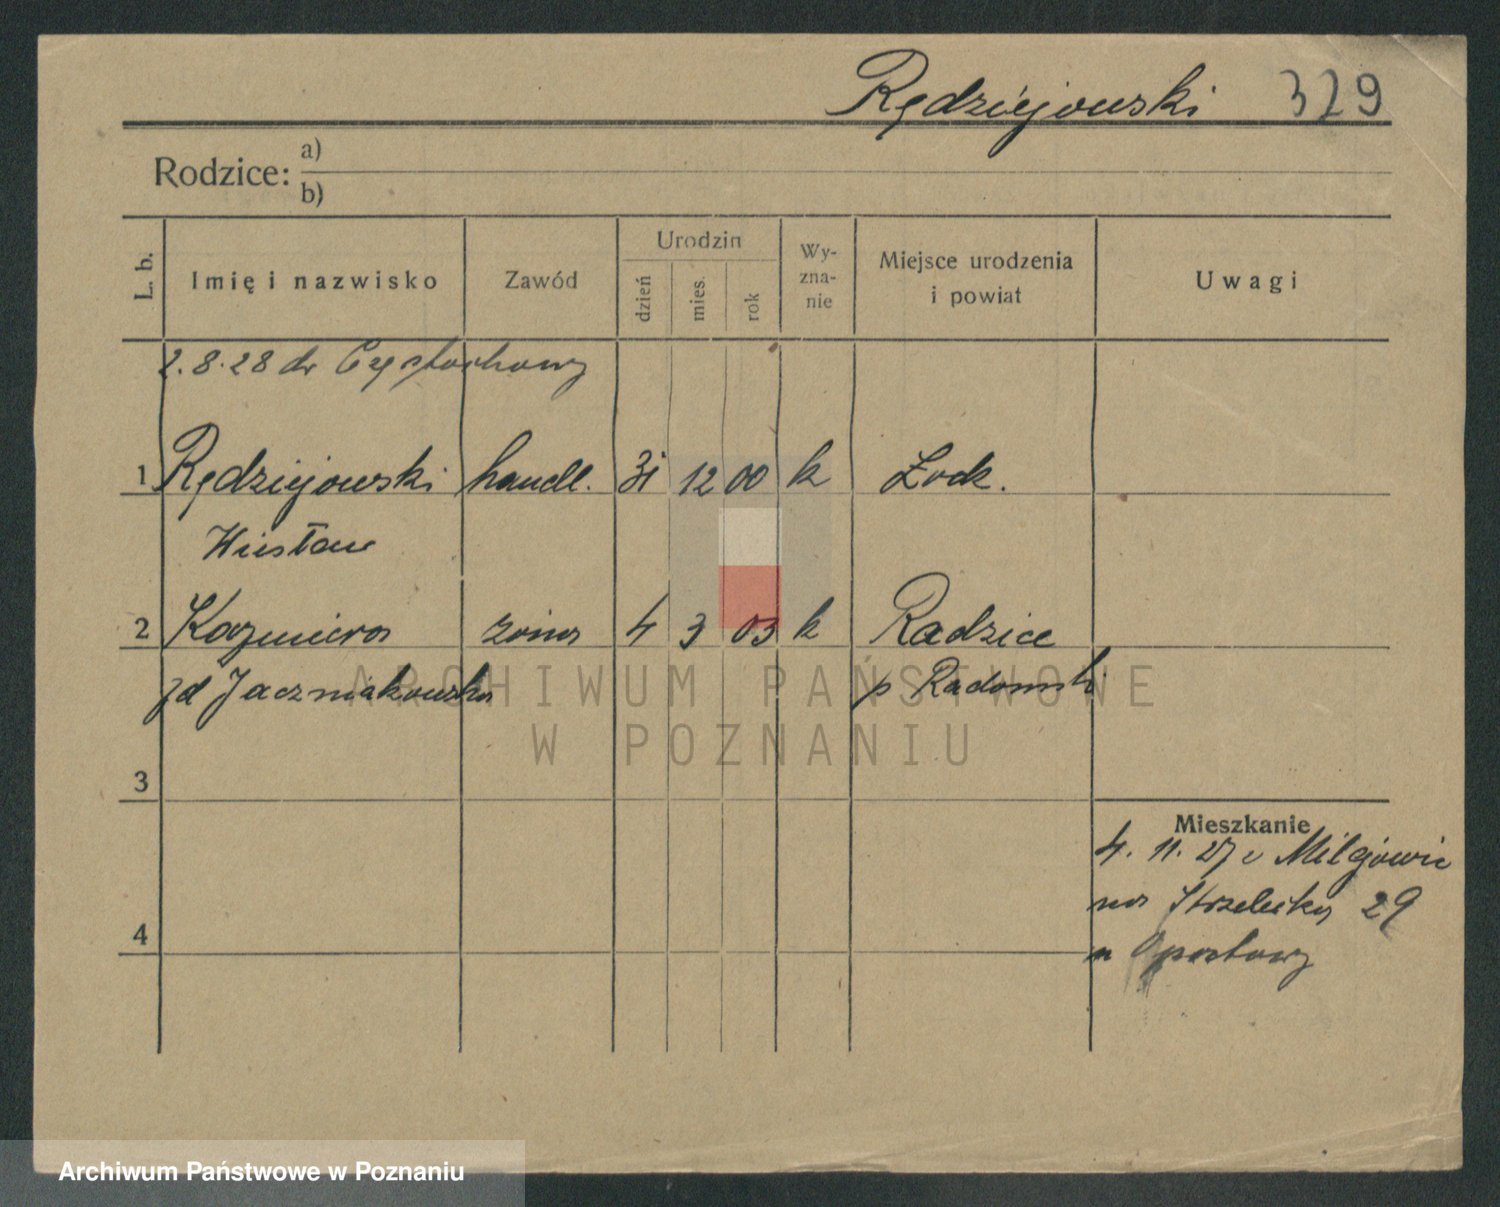 Rędziejowski 329
Rodzice: a)
b)
L. b. Imię i nazwisko Zawód Urodzin dzień mies. rok Wy-zna-nie Miejsce urodzenia i powiat Uwagi
2.8.28 do Częstochowy
1 Rędziejowski handl. 31 12 00 k
Wiesław
2 Kazmiera żona 4 3 03 k Radzice
zd Jaczniakowska p Radomsk
ARCHIWUM PAŃSTWOWE
W POZNANIU
3
Mieszkanie
4. 11. 27 Milejowic
na Strzelecka 29
4
u
Archiwum Państwowe w Poznaniu